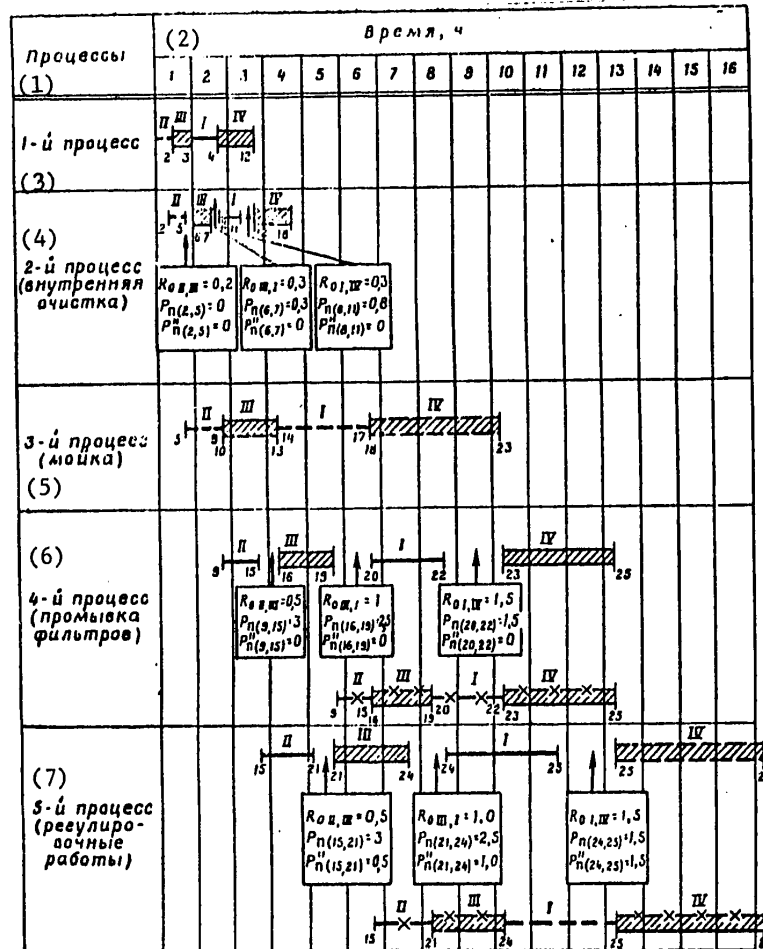 (2)
Время, ч
Процессы
(1)
1 2 3 4 5 6 7 8 9 10 11 12 13 14 15 16
1-й процесс
(3)
II III I IV
2 3 4 12
(4)
2-й процесс
(внутренняя
очистка)
II III I IV
2 5 6 7 11 18
R₀ II, III = 0,2
Pп(2,5) = 0
P"п(2,5) = 0
R₀ III, I = 0,3
Pп(6,7) = 0,3
P"п(6,7) = 0
R₀ I, IV = 0,3
Pп(8,11) = 0,8
P"п(8,11) = 0
3-й процесс
(мойка)
(5)
II III I IV
5 9 10 13 14 17 18 23
(6)
4-й процесс
(промывка
фильтров)
II III I IV
9 15 16 19 20 22 23 25
R₀ II, III = 0,5
Pп(9,15) = 3
P"п(9,15) = 0
R₀ III, I = 1
Pп(16,19) = 2,5
P"п(16,19) = 0
R₀ I, IV = 1,5
Pп(20,22) = 1,5
P"п(20,22) = 0
II III I IV
9 15 16 19 20 22 23 25
(7)
5-й процесс
(регулиро-
вочные
работы)
II III I IV
15 21 21 24 24 25 25
R₀ II, III = 0,5
Pп(15,21) = 3
P"п(15,21) = 0,5
R₀ III, I = 1,0
Pп(21,24) = 2,5
P"п(21,24) = 1,0
R₀ I, IV = 1,5
Pп(24,25) = 1,5
P"п(24,25) = 1,5
II III I IV
15 21 24 25